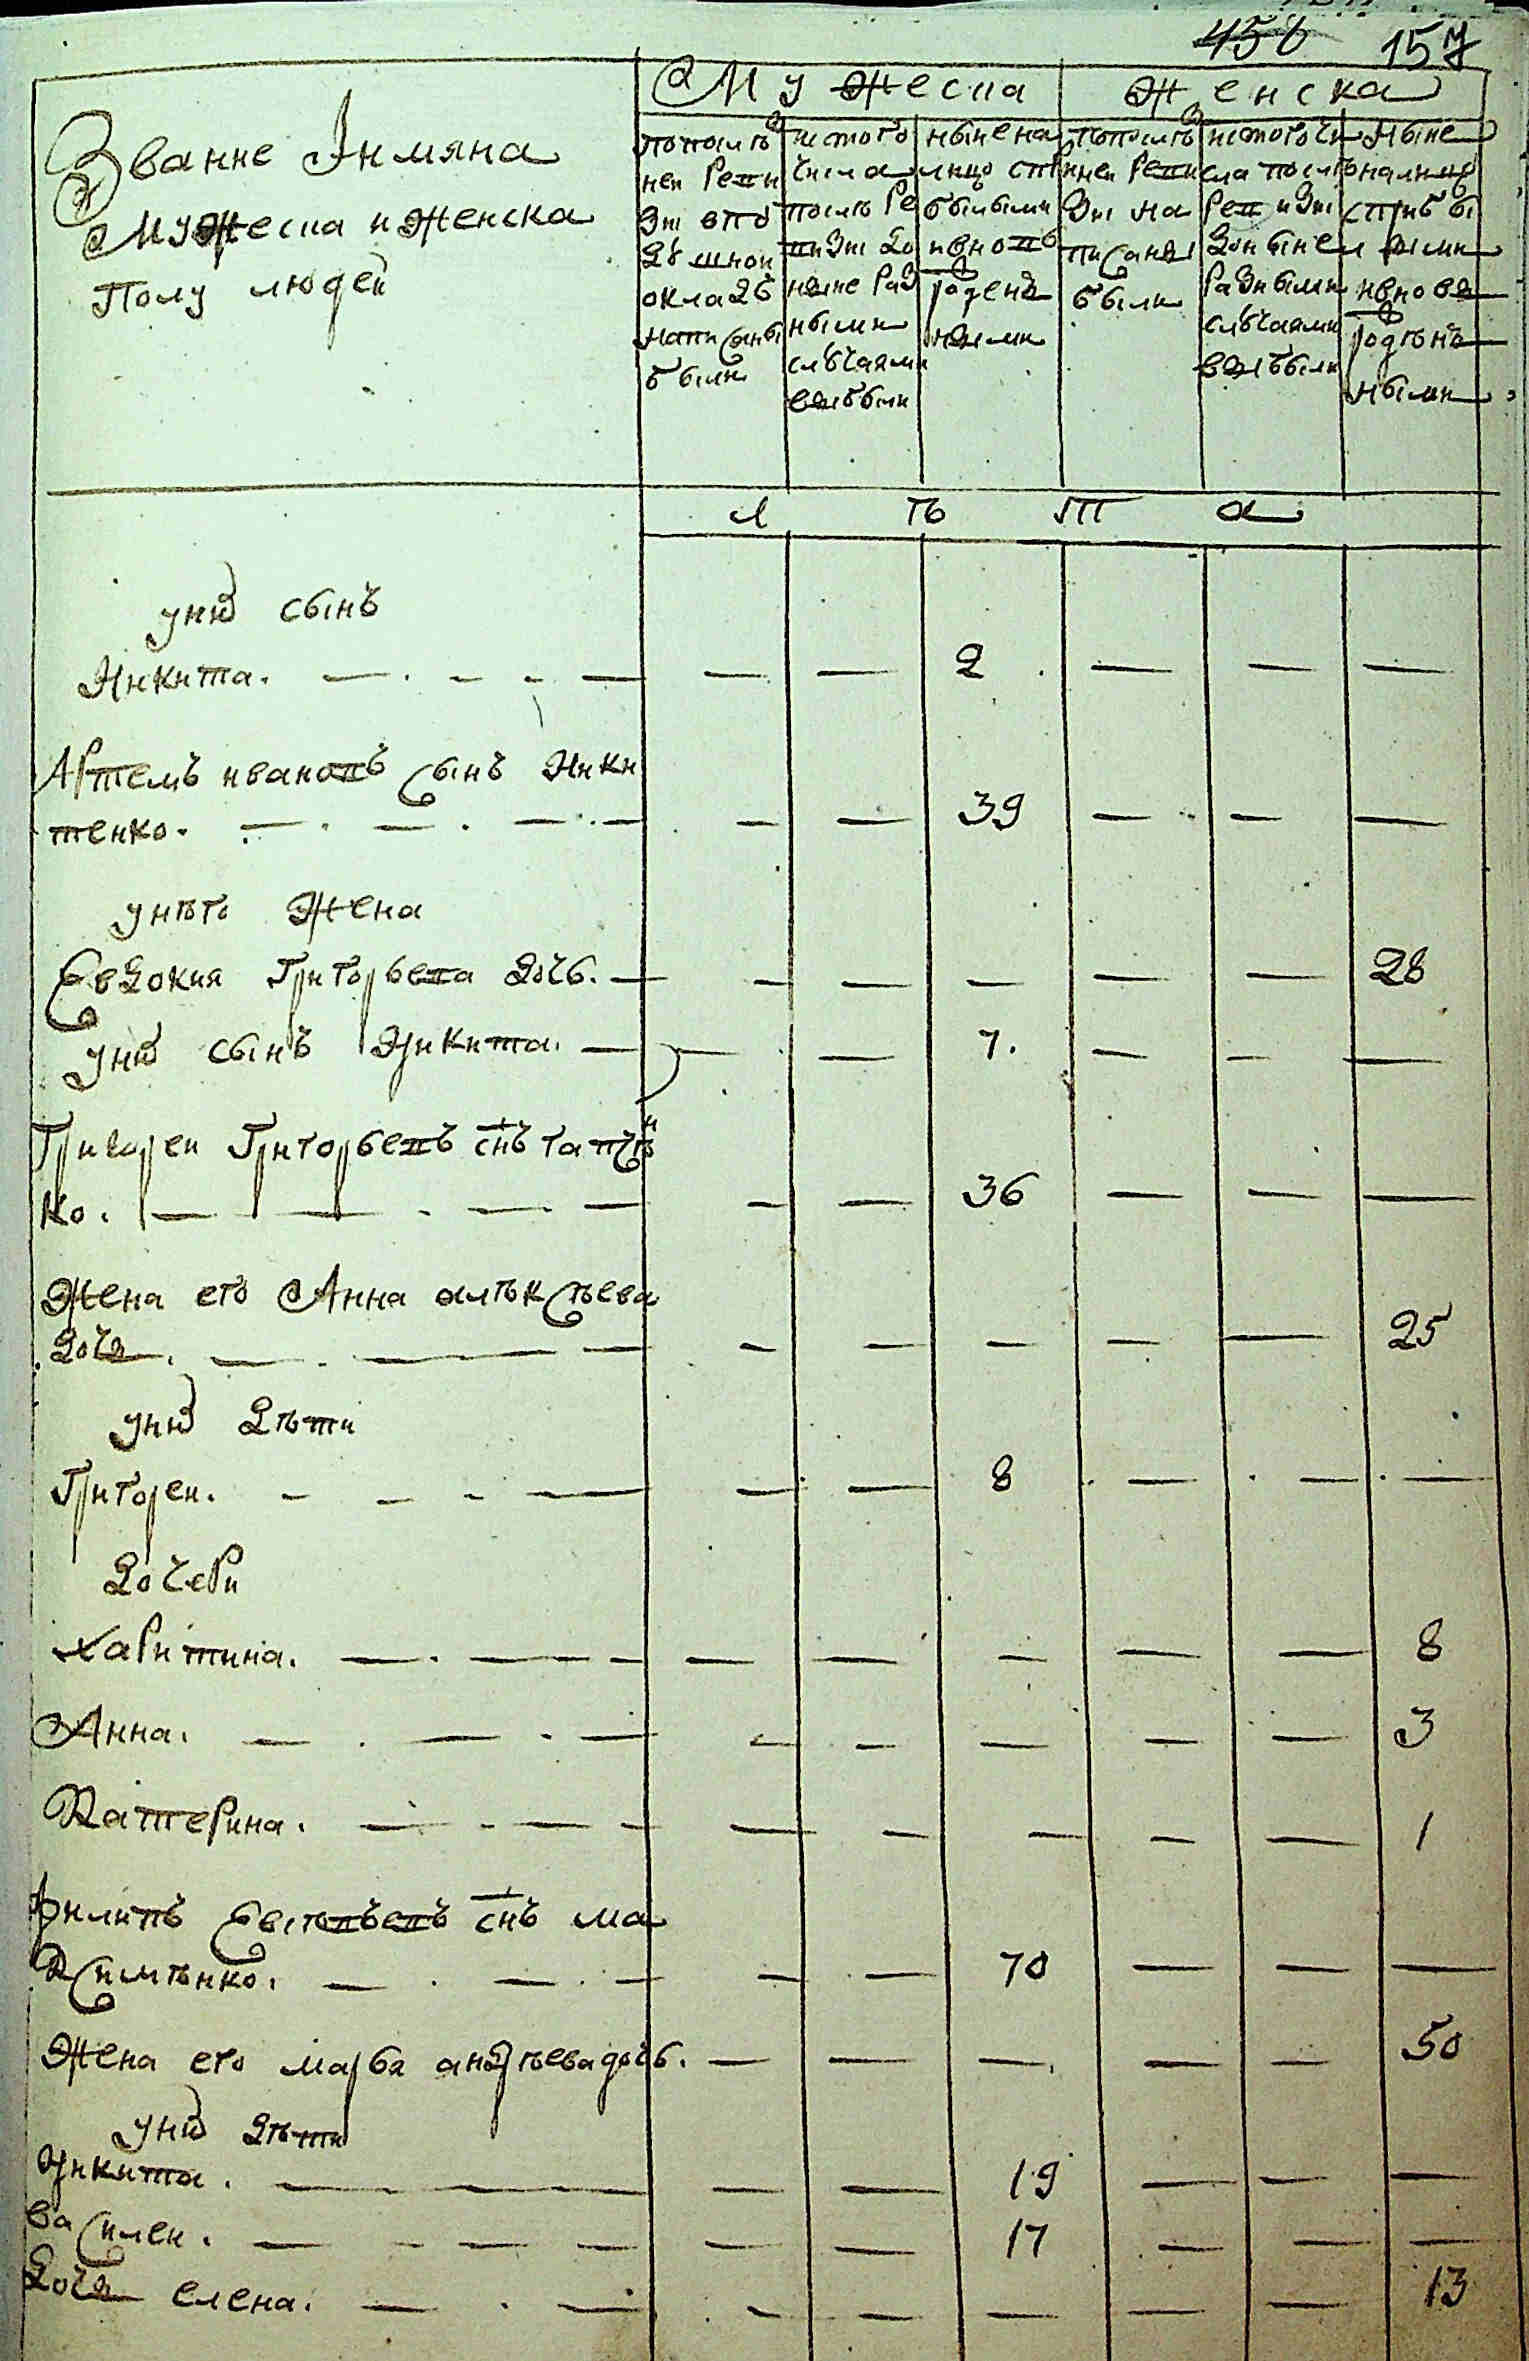 456 157
Мужеска Женска
Звание Имяна
Мужеска и Женска
Полу людей
по посл ней ревизии в подушной окладъ написаны были
ис того числа после ревизии до ныне разными случаями выбыли
ныне на лицо с прибылыми и вновь рожденными
по посл ней ревизии написаны были
ис того числа после ревизии до ныне разными случаями выбыли
ныне на лицо с прибылыми и вновь рожденными
л ѣ т а
у нихъ сынъ
Никита. — — — 2 — — —
Артемъ ивановъ сынъ Ники
тенко. — — 39 — — —
у него жена
Евдокия Григорьева дочь. — — — — — 28
у нихъ сынъ Никита. — — 7. — — —
Григореи Григорьевъ снъ
ко. — — 36 — — —
Жена его Анна алѣксѣева
дочь. — — — — — 25
у нихъ дѣти
Григореи. — — 8 — — —
Дочери
Харитина. — — — — — 8
Анна. — — — — — 3
Катерина. — — — — — 1
Филипъ снъ ма
ксимѣнко. — — 70 — — —
Жена его марва андрѣева дочь. — — — — — 50
у нихъ дѣти
Никита. — — 19 — — —
василеи. — — 17 — — —
Дочь елена. — — — — — 13